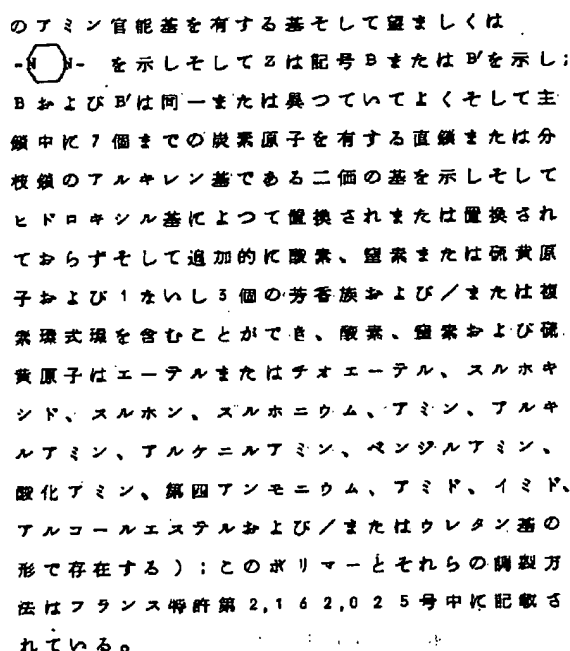 のアミン官能基を有する基そして望ましくは
-N N- を示しそしてZは記号BまたはB'を示し;
BおよびB'は同一または異つていてよくそして主
鎖中に7個までの炭素原子を有する直鎖または分
枝鎖のアルキレン基である二価の基を示しそして
ヒドロキシル基によつて置換されまたは置換され
ておらずそして追加的に酸素、窒素または硫黄原
子および1ないし3個の芳香族および/または複
素環式環を含むことができ、酸素、窒素および硫
黄原子はエーテルまたはチオエーテル、スルホキ
シド、スルホン、スルホニウム、アミン、アルキ
ルアミン、アルケニルアミン、ベンジルアミン、
酸化アミン、第四アンモニウム、アミド、イミド、
アルコールエステルおよび/またはウレタン基の
形で存在する);このポリマーとそれらの調製方
法はフランス特許第2,162,025号中に記載さ
れている。